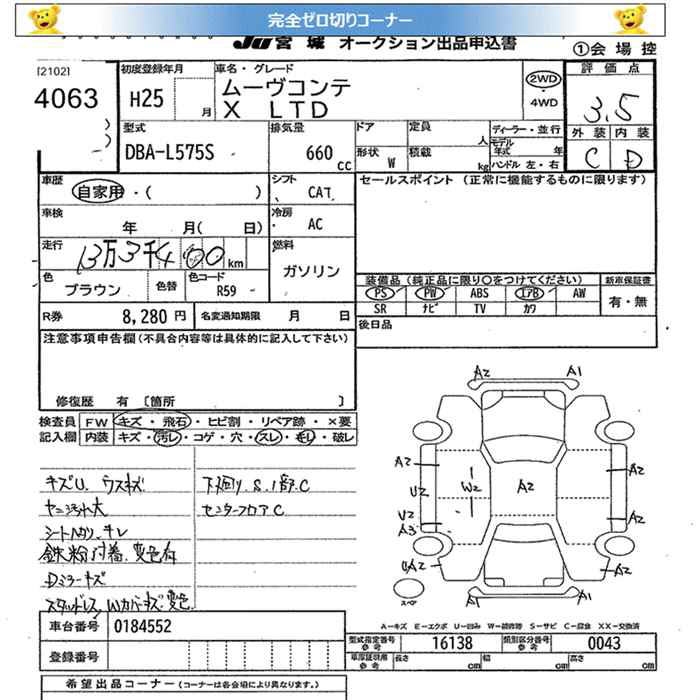 完全ゼロ切りコーナー
JU 宮城 オークション出品申込書
①会場控
[2102]
4063
初度登録年月
H25 月
車名・グレード
ムーヴコンテ
X LTD
2WD
・4WD
評価点
3.5
外装 内装
C D
型式
DBA-L575S
排気量
660 cc
ドア 定員 人
形状 W 積載 kg
ディーラー・並行
モデル年式 年
ハンドル 左・右
車歴
自家用・( )
シフト
CAT
セールスポイント (正常に機能するものに限ります)
車検
年 月( 日)
冷房
AC
走行
13万3千400km
燃料
ガソリン
色
ブラウン
色替
色コード
R59
装備品(純正品に限り○をつけてください)
新車保証書
PS PW ABS エアB AW
SR ナビ TV カワ
有・無
R券 8,280円
名変通知期限 月 日
後日品
注意事項申告欄(不具合内容等は具体的に記入して下さい)
修復歴 有〔箇所 〕
検査員記入欄
FW キズ・飛石・ヒビ割・リペア跡・×要
内装 キズ・汚レ・コゲ・穴・スレ・キレ・破レ
キズU. ウスキズ
ヤニ汚れ大
キレ
鉄粉付着.変色有
Dミラーキズ
スタッドレス Wカバーキズ.変色
下廻りS.1部C
センターフロアC
A2 A1
A2 A2
U2 W2 A2
U2 A2
A3
A2 A2
A1 A2
スペア
A―キズ E―エクボ U―凹み W―補修跡 S―サビ C―腐食 XX―交換済
車台番号 0184552
登録番号
型式指定番号 参考 16138
類別区分番号 参考 0043
車庫証明用 参考 長さ cm 幅 cm 高さ cm
希望出品コーナー(コーナーは各会場により異なります。)